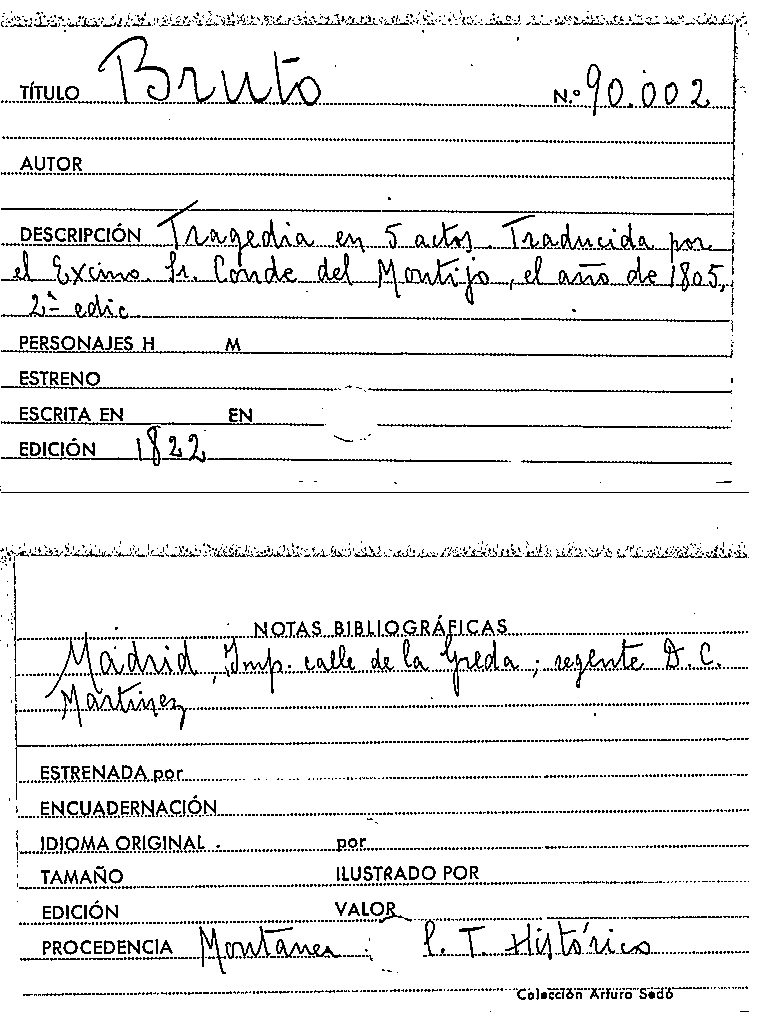 TÍTULO Bruto N.º 90.002
AUTOR
DESCRIPCIÓN Tragedia en 5 actos. Traducida por
el Excmo. Sr. Conde del Montijo, el año de 1805,
2ª edic.
PERSONAJES H M
ESTRENO
ESCRITA EN EN
EDICIÓN 1822
NOTAS BIBLIOGRÁFICAS
Madrid, Imp. calle de la Greda; regente D. C.
Martínez
ESTRENADA por
ENCUADERNACIÓN
IDIOMA ORIGINAL por
TAMAÑO ILUSTRADO POR
EDICIÓN VALOR
PROCEDENCIA Montaner. T. Histórico
Colección Arturo Sedó